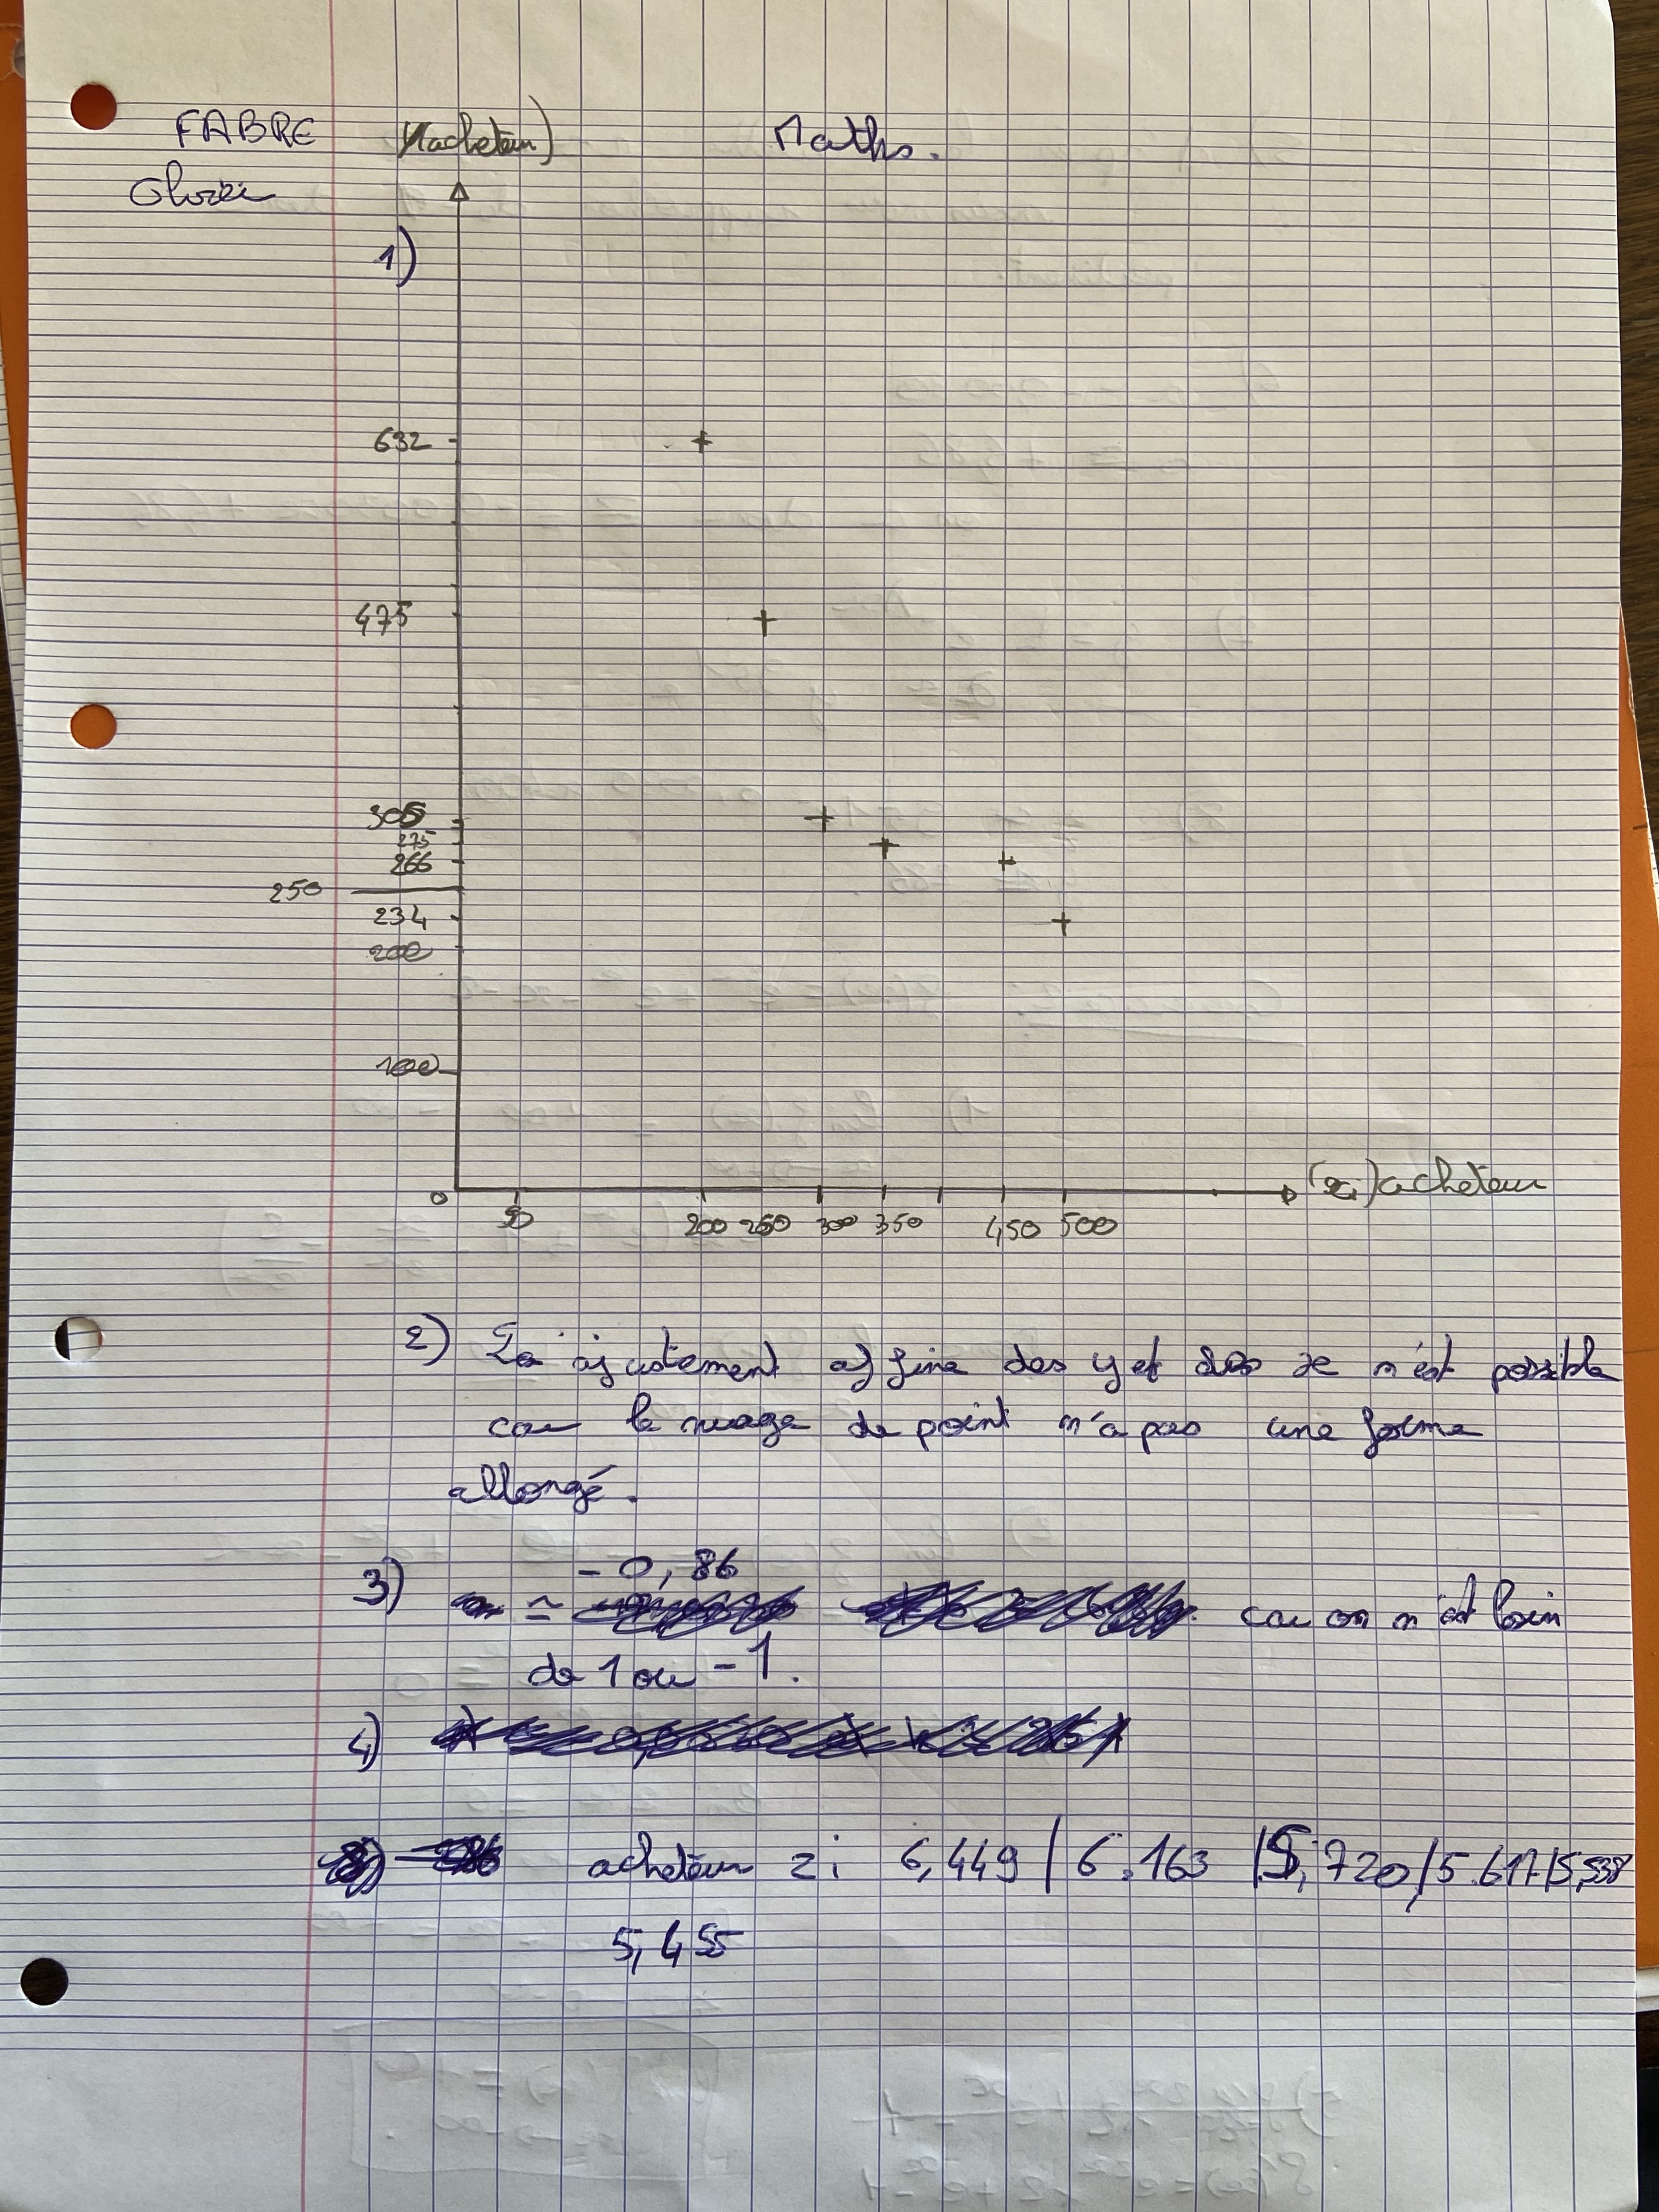 FABRE
Maths.
1)
632
475
305
275
266
250
234
200
100
0
50 200 250 300 350 450 500
(xi) acheteur
2) Le ajustement affine des y et des x n'est possible
car le nuage de point n'a pas une forme
allongé.
- 0,86
3) ≃ car on n'est loin
de 1 ou -1.
4)
acheteur zi 6,449 / 6.163 / 5,720 / 5.617 / 5,538
5,455